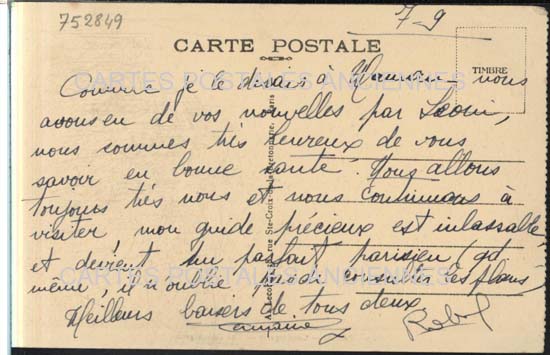 752849
7-9
CARTE POSTALE
TIMBRE
CARTES POSTALES ANCIENNES
Comme je le disais à Maman nous
avons eu de vos nouvelles par
nous sommes très heureux de vous
savoir en bonne santé. Nous allons
toujours très nous et nous continuons à
visiter mon guide précieux est inlassable
et devient un parfait parisien (qd
même, il n'oublie pas de consulter ses plans)
CARTES POSTALES ANCIENNES
Meilleurs baisers de tous deux
rue Ste-Croix-de-la-Bretonnerie, Paris